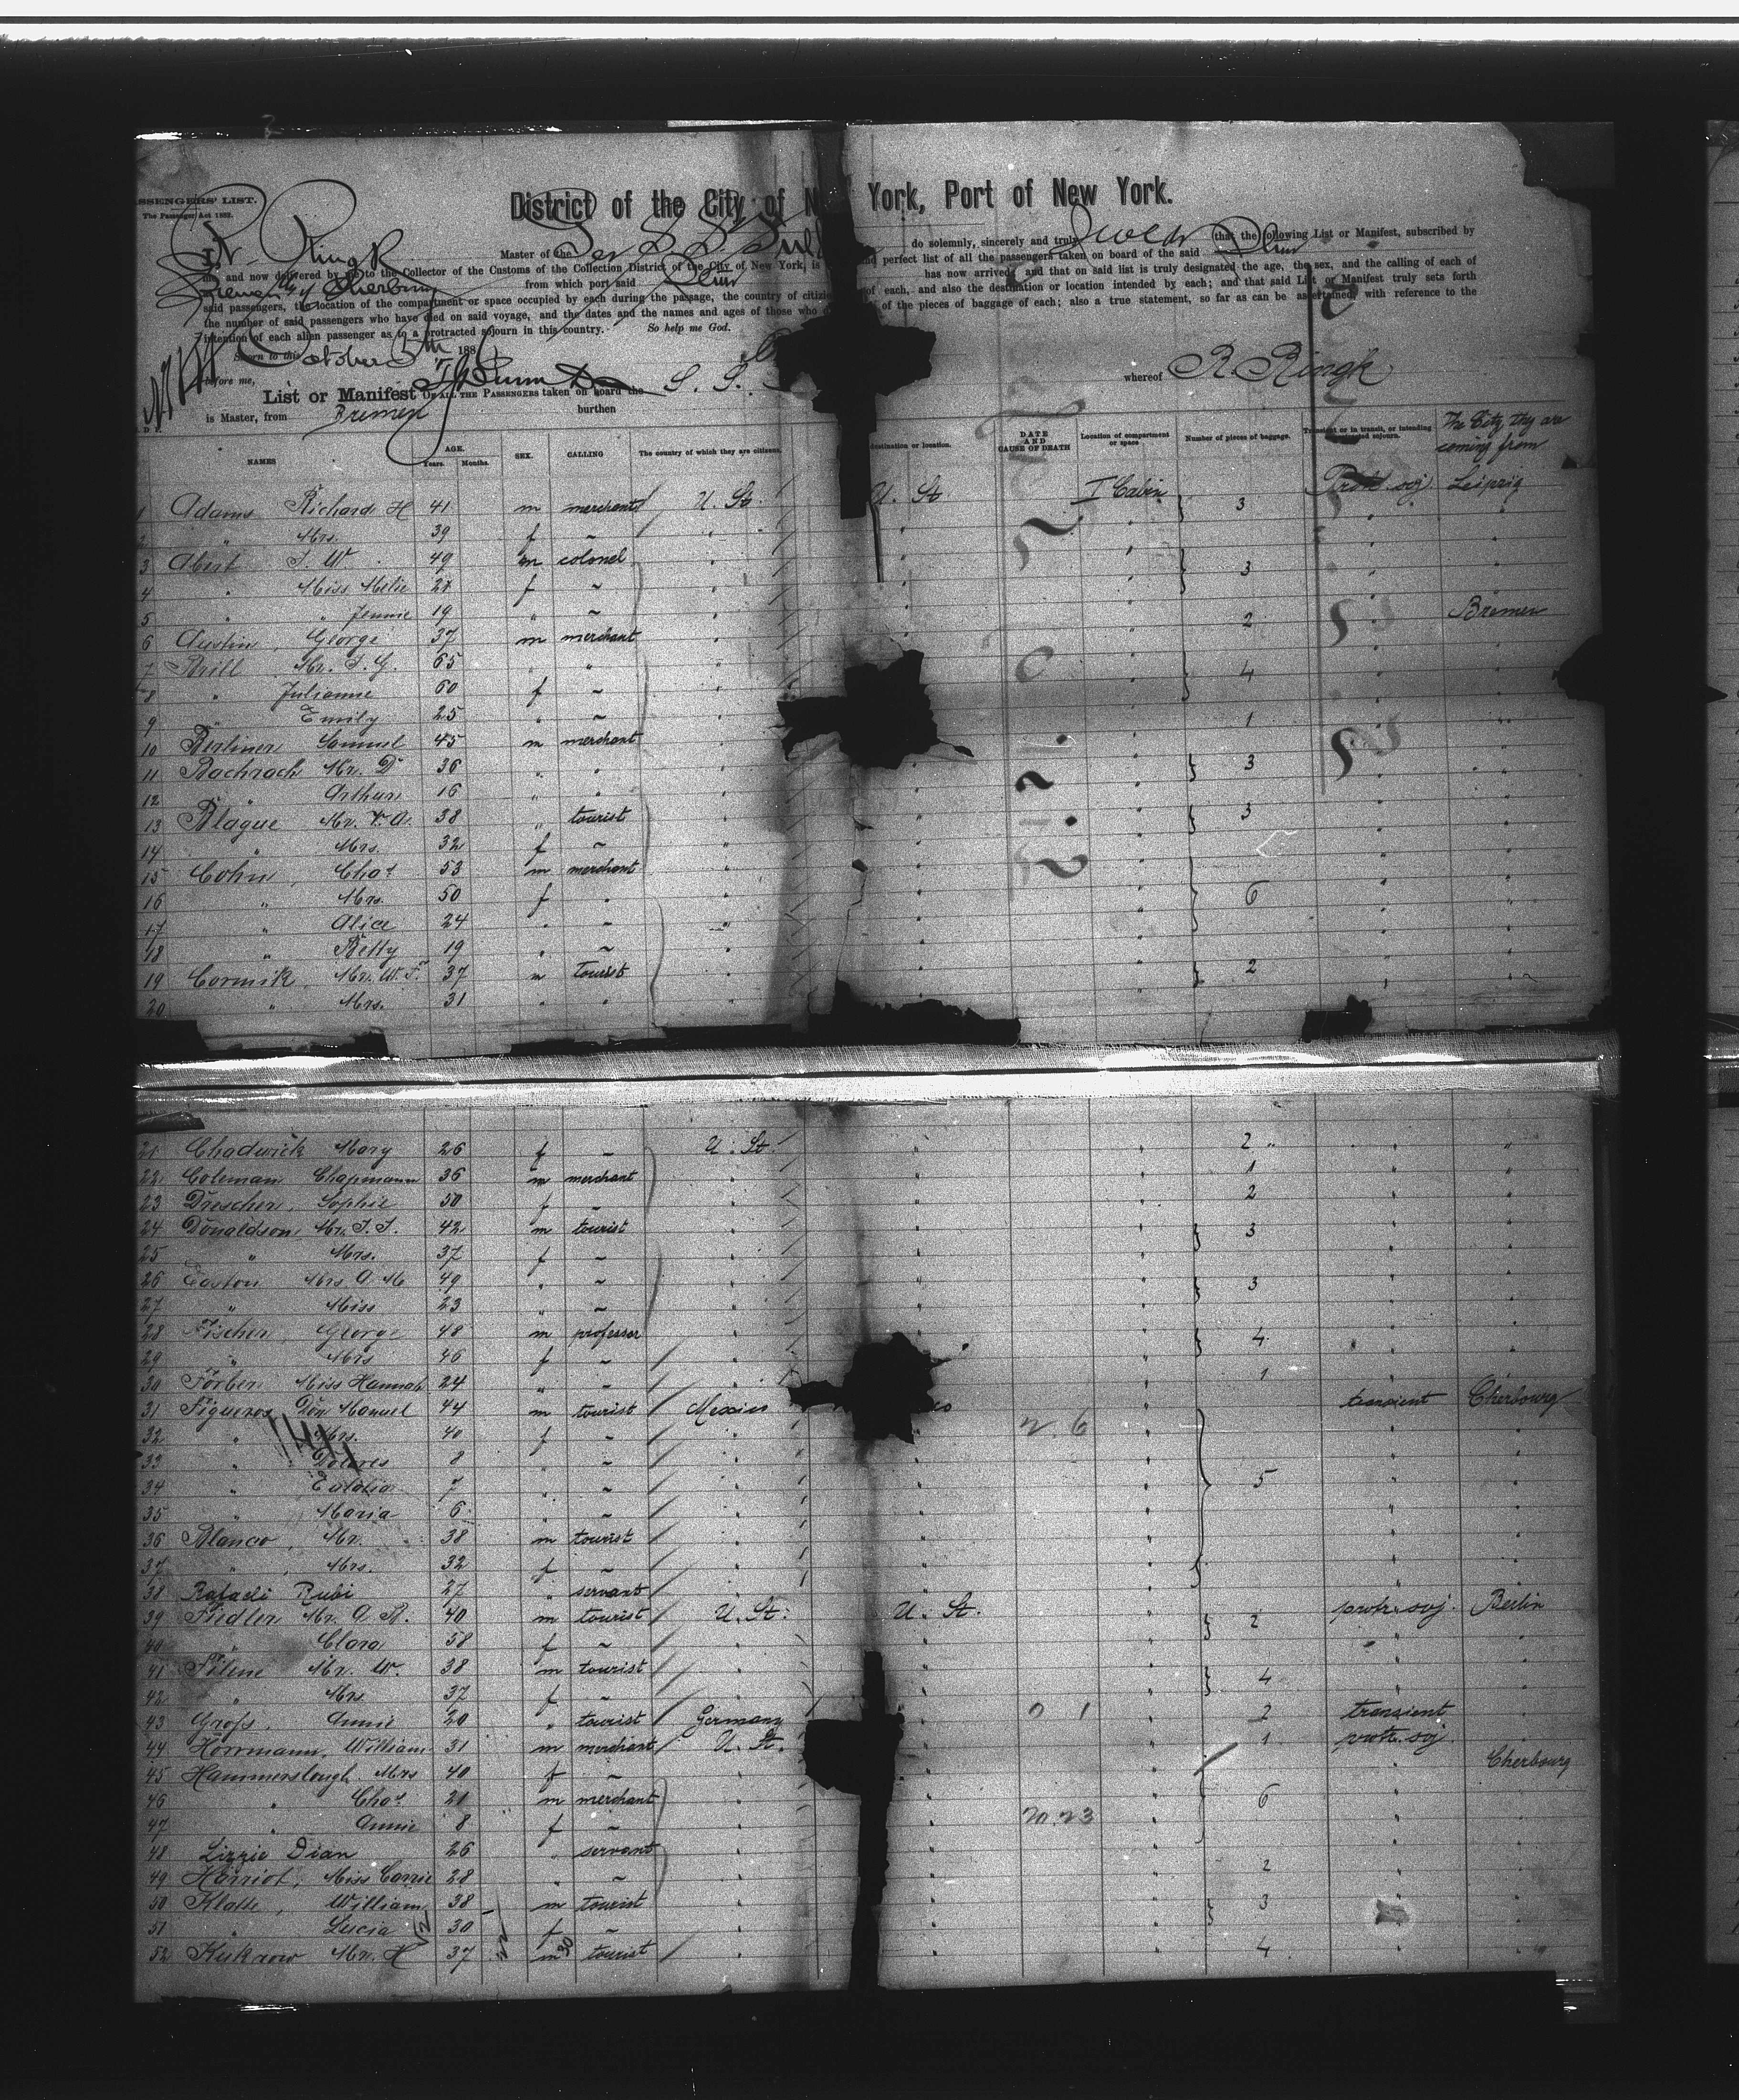 PASSENGERS' LIST.
The Passenger Act 1882.
District of the City of N York, Port of New York.
I, R. Ringk Master of the Ger S.S. do solemnly, sincerely and truly swear that the following List or Manifest, subscribed by
me, and now delivered by me to the Collector of the Customs of the Collection District of the City of New York, is perfect list of all the passengers taken on board of the said
Bremen & Cherbourg from which port said has now arrived, and that on said list is truly designated the age, the sex, and the calling of each of
said passengers, the location of the compartment or space occupied by each during the passage, the country of citize of each, and also the destination or location intended by each; and that said List or Manifest truly sets forth
the number of said passengers who have died on said voyage, and the dates and the names and ages of those who of the pieces of baggage of each; also a true statement, so far as can be ascertained, with reference to the
intention of each alien passenger as to a protracted sojourn in this country. So help me God.
Sworn to this October 5th 188
before me,
List or Manifest OF ALL THE PASSENGERS taken on board the S. S. whereof R. Ringk
is Master, from Bremen burthen
NAMES AGE. Years. Months. SEX. CALLING The country of which they are citizens. destination or location. DATE AND CAUSE OF DEATH Location of compartment or space Number of pieces of baggage. Transient or in transit, or intending protracted sojourn. The City they are coming from
1 Adams Richard H 41 m merchant U. St. U. St I Cabin 3 Protr. soj Leipzig
2 " Mrs. 39 f ~ "
3 Abert J. W. 49 m colonel " 3
4 " Miss Melie f ~ "
5 " " Jennie 19 " ~ "
6 Austin, George 37 m merchant " 2 Bremen
7 Brill Mr. J. G. 65 " " " 4
8 " Julianne 60 f ~ "
9 " Emily 25 " ~ "
10 Berliner Samuel 45 m merchant " 1
11 Bachrach Mr. D 36 " " " 3
12 " Arthur 16 " " "
13 Blague Mr. V. A. 38 " tourist " 3
14 " Mrs. 32 f ~ "
15 Cohn, Chas 53 m merchant " 6
16 " Mrs. 50 f " "
17 " Alice 24 " ~ "
18 " Betty 19 " ~ "
19 Cormik, Mr. W. F. 37 m tourist " 2
20 " Mrs. 31 " " "
21 Chadwick Mary 26 f ~ U. St. 2 "
22 Coleman Chapmann 36 m merchant " 1
23 Drescher, Sophie 50 f ~ " 2
24 Donaldson, Mr. J. J. 42 m tourist " 3
25 " Mrs. 37 f ~ "
26 Easton Mrs A. M 49 " ~ " 3
27 " Miss 23 " ~ "
28 Fischer, George 48 m professor " 4
29 " Mrs 46 f ~ "
30 Förber Miss Hannah 24 " ~ " 1
31 Figueros Don Manuel 44 m tourist Mexico transient Cherbourg
32 " Mrs. 40 f ~ " 2. 6
33 " Dolores 8 " ~ "
34 " Eulalia 7 " ~ " 5
35 " Maria 6 " ~ "
36 Blanco, Mr. 38 m tourist "
37 " Mrs. 32 f ~ "
38 Rafaeli Rubi 27 " servant "
39 Fiedler Mr. A. R. 40 m tourist U. St. U. St. 2 protr. soj. Berlin
40 " Clara 58 f ~ "
41 Filene Mr. W. 38 m tourist " 4
42 " Mrs 37 f ~ "
43 Gross, Annie 20 " tourist Germany 2 transient
44 Horrmann, William 31 m merchant U. St. 1 protr. soj
45 Hammerslough Mrs 40 f ~ " Cherbourg
46 " Chas 21 m merchant " 6
47 " Annie 8 f ~ "
48 Lizzie Dian 26 " servant "
49 Harriot, Miss Carrie 28 " ~ " 2
50 Klatte, William 38 m tourist " 3
51 " Lucia 30 f ~ "
52 Kukrow Mr. H 37 m tourist " 4